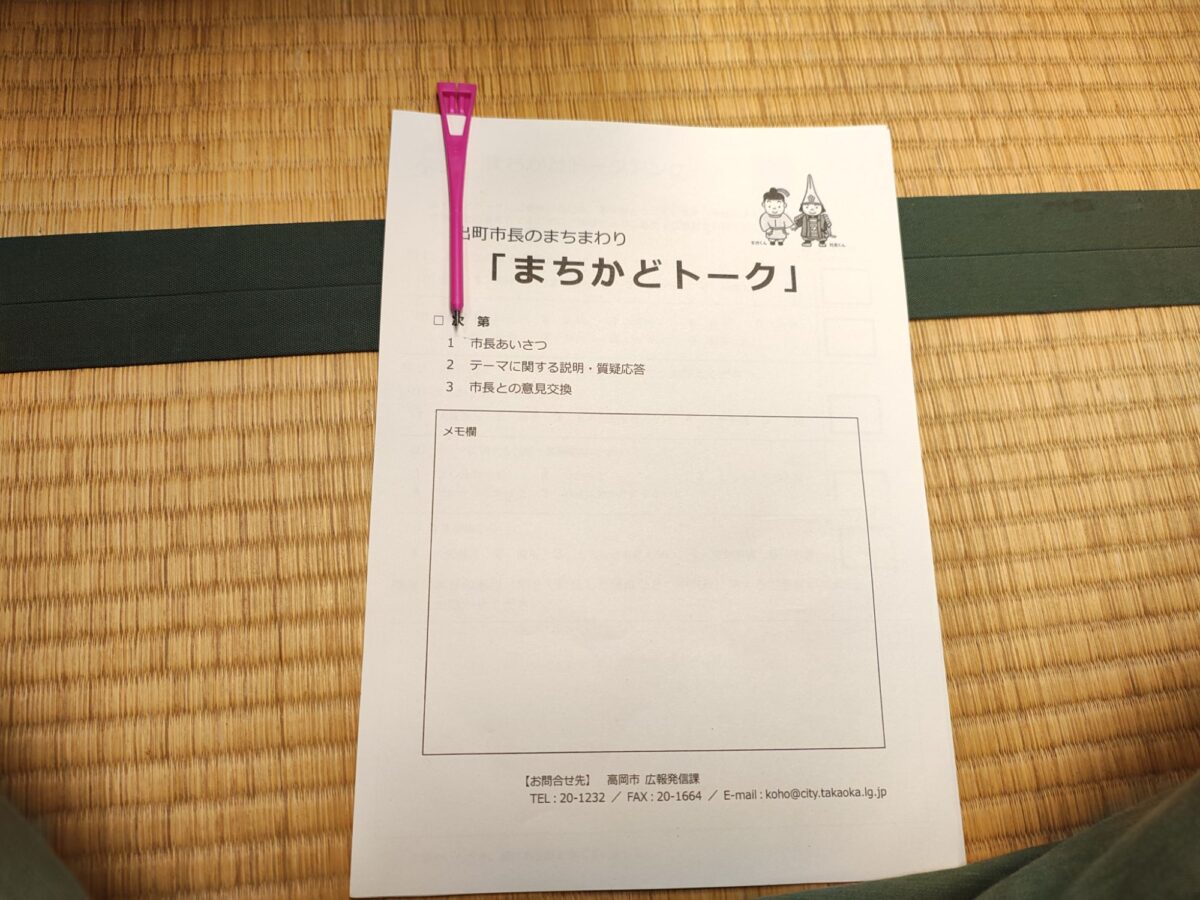 出町市長のまちまわり
「まちかどトーク」
□ 次 第
1 市長あいさつ
2 テーマに関する説明・質疑応答
3 市長との意見交換
メモ欄
【お問合せ先】 高岡市 広報発信課
TEL:20-1232 / FAX:20-1664 / E-mail:koho@city.takaoka.lg.jp